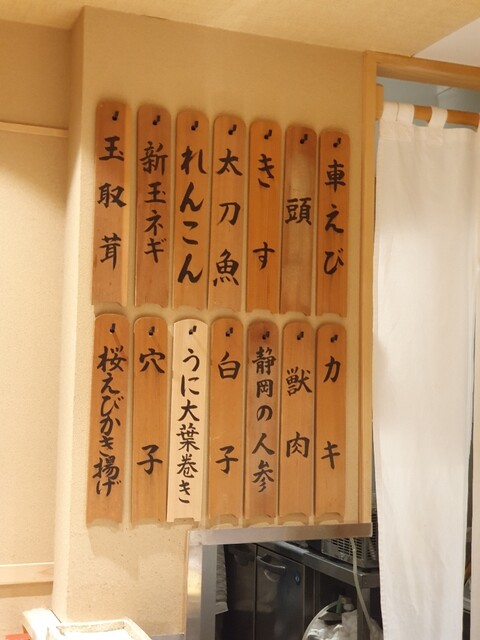 車えび
頭
きす
太刀魚
れんこん
新玉ネギ
玉取茸
カキ
獣肉
静岡の人参
白子
うに大葉巻き
穴子
桜えびかき揚げ